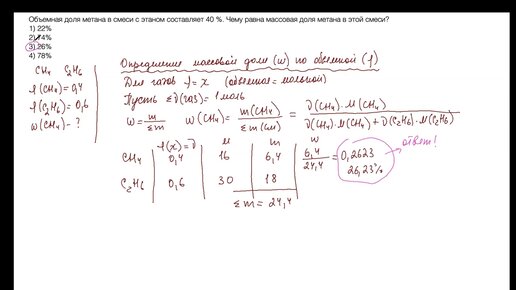 Объемная доля метана в смеси с этаном составляет 40 %. Чему равна массовая доля метана в этой смеси?
1) 22%
2) 74%
3) 26%
4) 78%
CH4 C2H6
φ(CH4)=0,4
φ(C2H6)=0,6
ω(CH4) - ?
Определение массовой доли (ω) по объемной (φ)
Для газов φ=χ (объемная = мольной)
Пусть Σν(газ)=1 моль
ω = m / Σm ω(CH4) = m(CH4) / Σm(см) = ν(CH4)·M(CH4) / ν(CH4)·M(CH4)+ν(C2H6)·M(C2H6)
φ(χ)=ν M m ω
CH4 0,4 16 6,4 6,4 / 24,4 = 0,2623
26,23%
ответ!
C2H6 0,6 30 18
Σm = 24,4